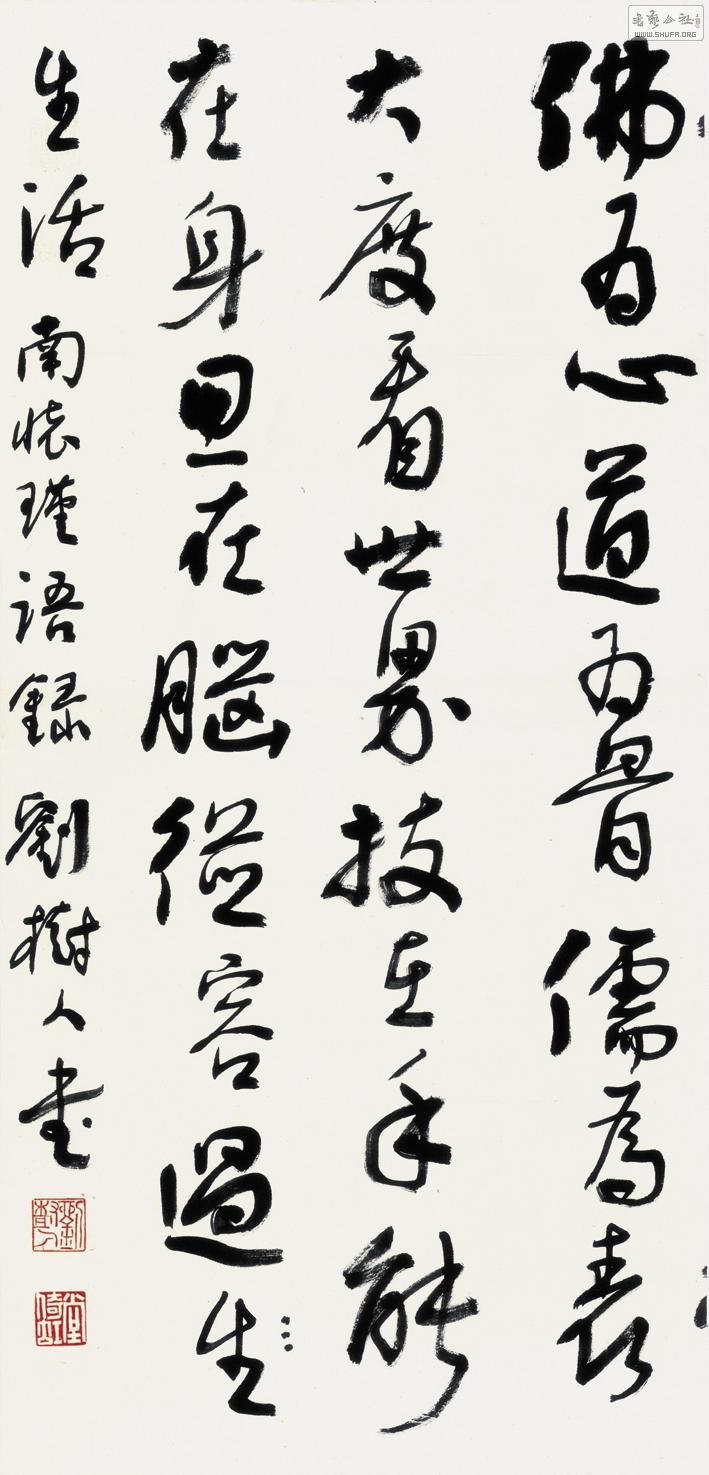 佛為心道為骨儒為表
大度看世界技在手能
在身思在腦從容過生
生活 南懷瑾語錄 劉樹人書
劉樹人
書藝公社
WWW.SHUFA.ORG